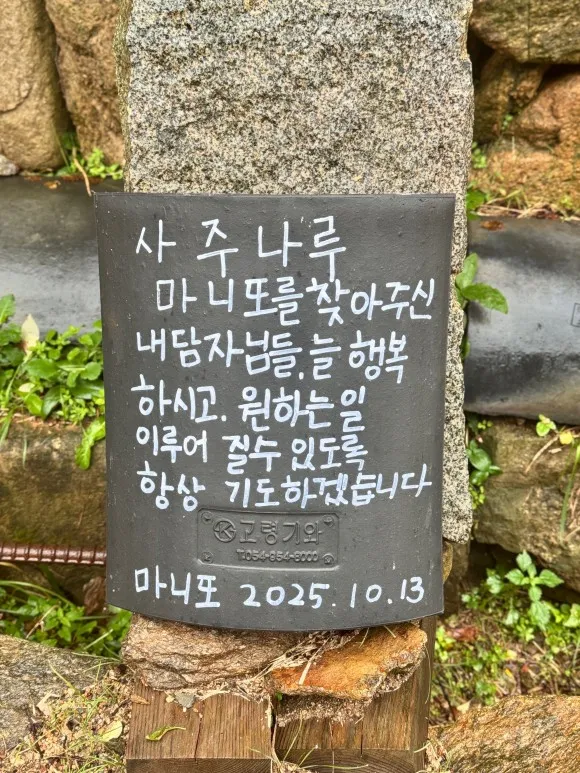 사주나루
마니또를 찾아주신
내담자님들. 늘 행복
하시고. 원하는 일
이루어 질수 있도록
항상 기도하겠습니다
고령기와
T.054-954-8000
마니또 2025.10.13